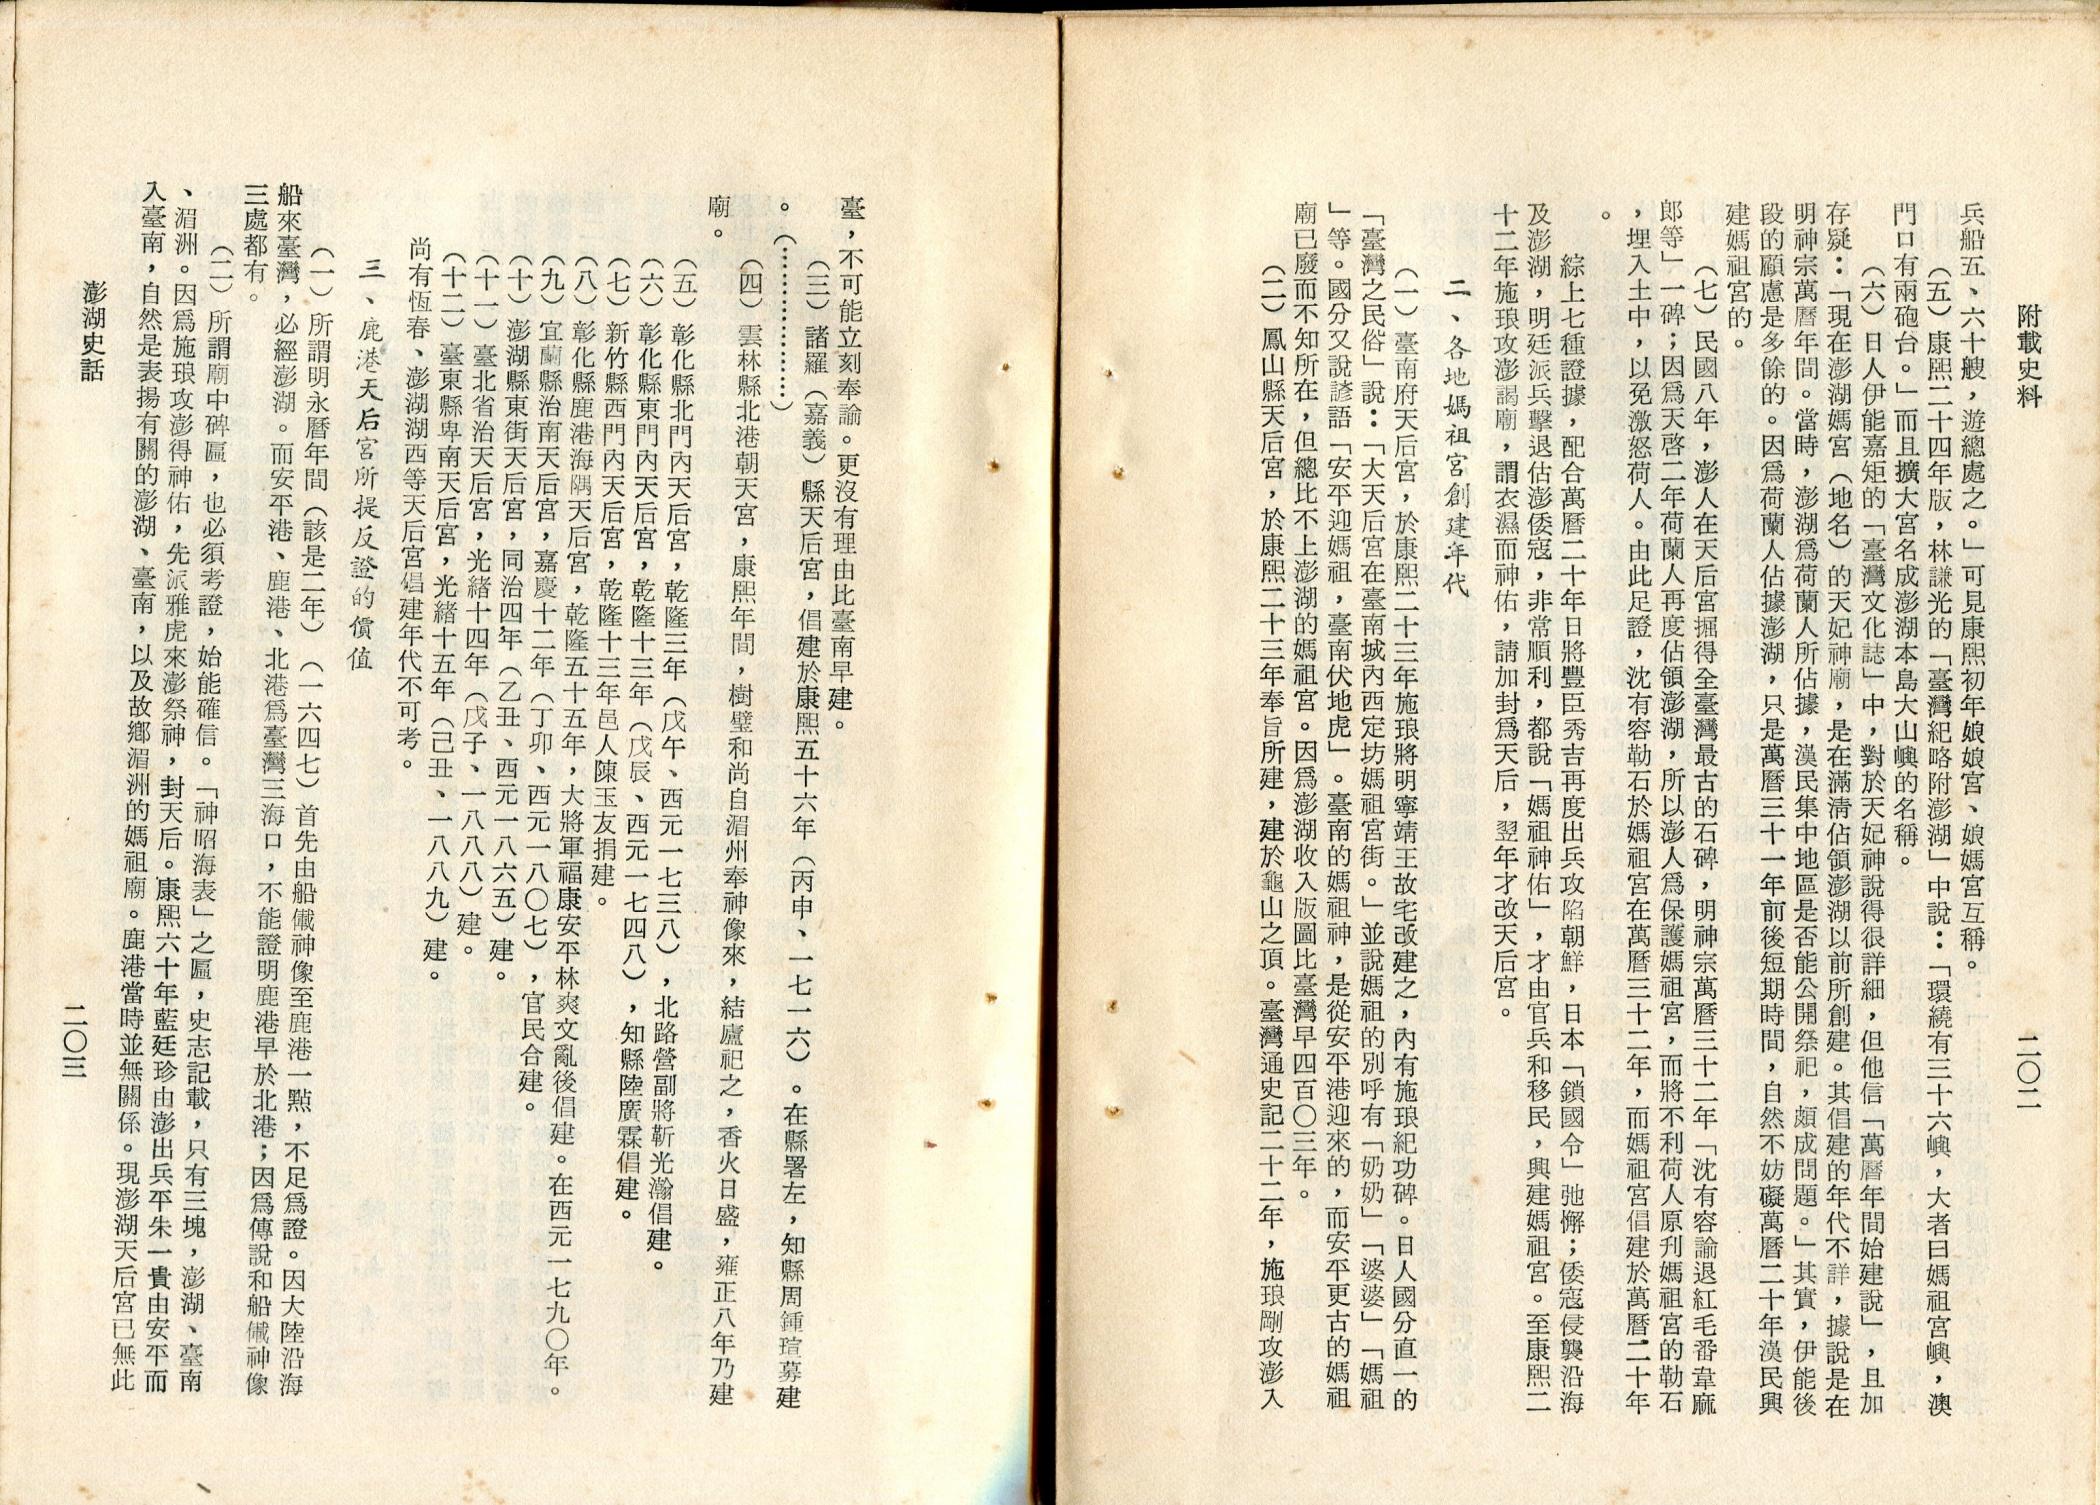 附載史料
二〇二
兵船五、六十艘，遊總處之。」可見康熙初年娘娘宮、娘媽宮互稱。
（五）康熙二十四年版，林謙光的「臺灣紀略附澎湖」中說：「環繞有三十六嶼，大者曰媽祖宮嶼，澳
門口有兩砲台。」而且擴大宮名成澎湖本島大山嶼的名稱。
（六）日人伊能嘉矩的「臺灣文化誌」中，對於天妃神說得很詳細，但他信「萬曆年間始建說」，且加
存疑：「現在澎湖媽宮（地名）的天妃神廟，是在滿淸佔領澎湖以前所創建。其倡建的年代不詳，據說是在
明神宗萬曆年間。當時，澎湖爲荷蘭人所佔據，漢民集中地區是否能公開祭祀，頗成問題。」其實，伊能後
段的顧慮是多餘的。因爲荷蘭人佔據澎湖，只是萬曆三十一年前後短期時間，自然不妨礙萬曆二十年漢民興
建媽祖宮的。
（七）民國八年，澎人在天后宮掘得全臺灣最古的石碑，明神宗萬曆三十二年「沈有容諭退紅毛番韋麻
郎等」一碑；因爲天啓二年荷蘭人再度佔領澎湖，所以澎人爲保護媽祖宮，而將不利荷人原刋媽祖宮的勒石
，埋入土中，以免激怒荷人。由此足證，沈有容勒石於媽祖宮在萬曆三十二年，而媽祖宮倡建於萬曆二十年
。
綜上七種證據，配合萬曆二十年日將豐臣秀吉再度出兵攻陷朝鮮，日本「鎖國令」弛懈；倭寇侵襲沿海
及澎湖，明廷派兵擊退佔澎倭寇，非常順利，都說「媽祖神佑」，才由官兵和移民，興建媽祖宮。至康熙二
十二年施琅攻澎謁廟，謂衣濕而神佑，請加封爲天后，翌年才改天后宮。
二、各地媽祖宮創建年代
（一）臺南府天后宮，於康熙二十三年施琅將明寧靖王故宅改建之，內有施琅紀功碑。日人國分直一的
「臺灣之民俗」說：「大天后宮在臺南城內西定坊媽祖宮街。」並說媽祖的別呼有「奶奶」「婆婆」「媽祖
」等。國分又說諺語「安平迎媽祖，臺南伏地虎」。臺南的媽祖神，是從安平港迎來的，而安平更古的媽祖
廟已廢而不知所在，但總比不上澎湖的媽祖宮。因爲澎湖收入版圖比臺灣早四百〇三年。
（二）鳳山縣天后宮，於康熙二十三年奉旨所建，建於龜山之頂。臺灣通史記二十二年，施琅剛攻澎入
臺，不可能立刻奉諭。更沒有理由比臺南早建。
（三）諸羅（嘉義）縣天后宮，倡建於康熙五十六年（丙申、一七一六）。在縣署左，知縣周鍾瑄募建
。（…………）
（四）雲林縣北港朝天宮，康熙年間，樹璧和尚自湄州奉神像來，結廬祀之，香火日盛，雍正八年乃建
廟。
（五）彰化縣北門內天后宮，乾隆三年（戊午、西元一七三八），北路營副將靳光瀚倡建。
（六）彰化縣東門內天后宮，乾隆十三年（戊辰、西元一七四八），知縣陸廣霖倡建。
（七）新竹縣西門內天后宮，乾隆十三年邑人陳玉友捐建。
（八）彰化縣鹿港海隅天后宮，乾隆五十五年，大將軍福康安平林爽文亂後倡建。在西元一七九〇年。
（九）宜蘭縣治南天后宮，嘉慶十二年（丁卯、西元一八〇七），官民合建。
（十）澎湖縣東街天后宮，同治四年（乙丑、西元一八六五）建。
（十一）臺北省治天后宮，光緒十四年（戊子、一八八八）建。
（十二）臺東縣卑南天后宮，光緒十五年（己丑、一八八九）建。
尚有恆春、澎湖湖西等天后宮倡建年代不可考。
三、鹿港天后宮所提反證的價值
（一）所謂明永曆年間（該是二年）（一六四七）首先由船儎神像至鹿港一點，不足爲證。因大陸沿海
船來臺灣，必經澎湖。而安平港、鹿港、北港爲臺灣三海口，不能證明鹿港早於北港；因爲傳說和船儎神像
三處都有。
（二）所謂廟中碑匾，也必須考證，始能確信。「神昭海表」之匾，史志記載，只有三塊，澎湖、臺南
、湄洲。因爲施琅攻澎得神佑，先派雅虎來澎祭神，封天后。康熙六十年藍廷珍由澎出兵平朱一貴由安平而
入臺南，自然是表揚有關的澎湖、臺南，以及故鄉湄洲的媽祖廟。鹿港當時並無關係。現澎湖天后宮已無此
澎湖史話
二〇三